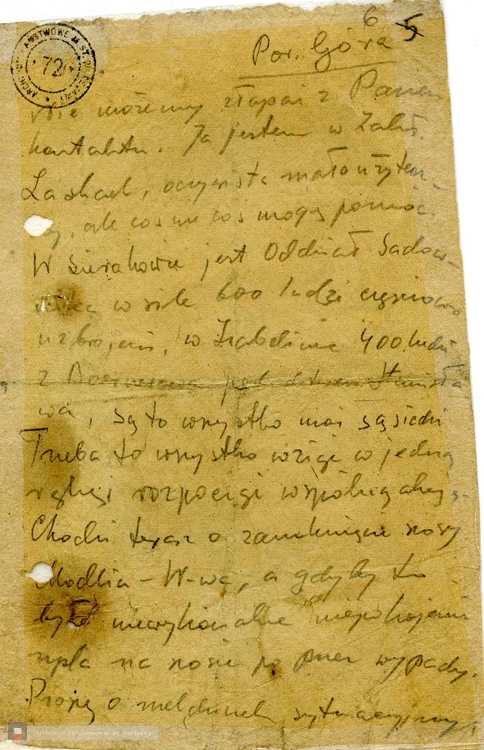 6 5
Por. Góra
nie możemy złapać z Panem
kontaktu. Ja jestem w Zakł.
Laskach, oczywiście mało użytecz-
ny, ale coś nie coś mogę pomóc.
W Sierakowie jest Oddział Sadow-
w sile 600 ludzi częściowo
uzbrojeni, w Izabelinie 400 ludzi
z pod
wa, są to wszystko moi sąsiedzi
Trzeba to wszystko wziąć w jedną
rękę, rozpocząć wspólną akcję.
Chodzi teraz o zamknięcie szosy
Modlin - W-wa, a gdyby to
było niewykonalne niepokojenie
npla na szosie po przez wypady.
Proszę o meldunek sytuacyjny.
72